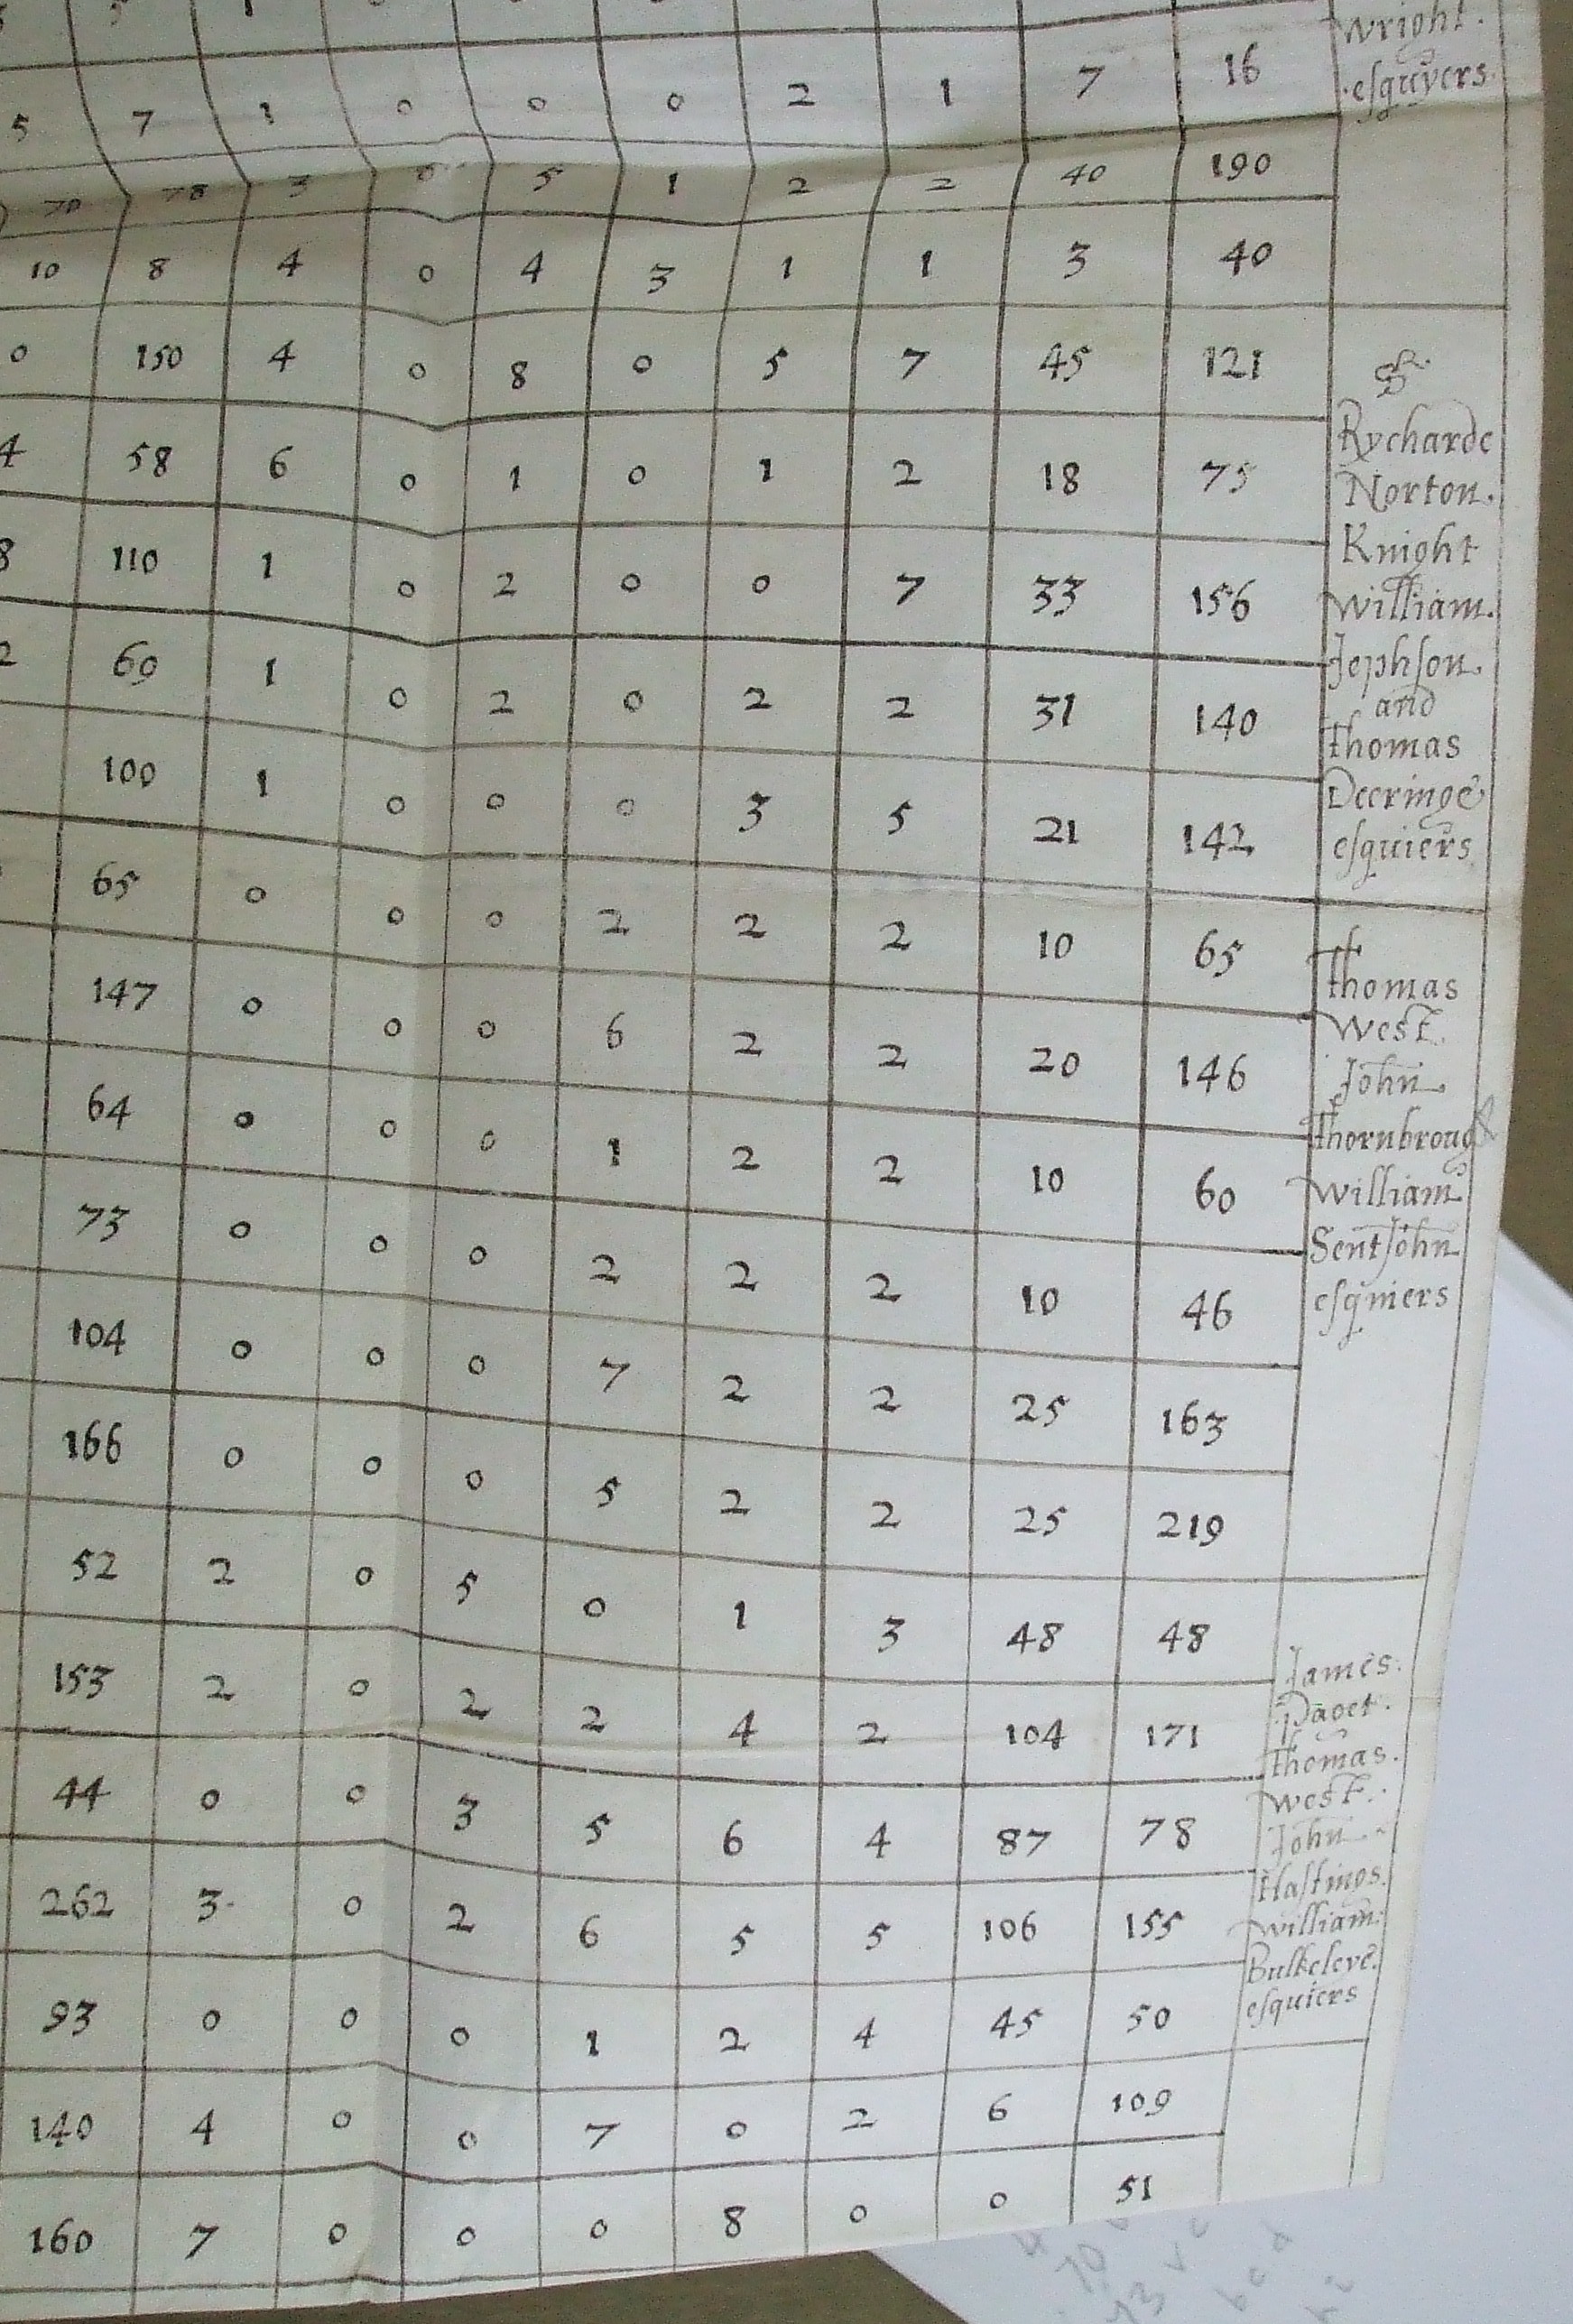 5 7 1 0 0 0 2 1 7 16
70 78 3 0 5 1 2 2 40 190
10 8 4 0 4 3 1 1 3 40
0 150 4 0 8 0 5 7 45 121
4 58 6 0 1 0 1 2 18 75
8 110 1 0 2 0 0 7 33 156
2 69 1 0 2 0 2 2 31 140
100 1 0 0 0 3 5 21 142
65 0 0 0 2 2 2 10 65
147 0 0 0 6 2 2 20 146
64 0 0 0 1 2 2 10 60
73 0 0 0 2 2 2 10 46
104 0 0 0 7 2 2 25 163
166 0 0 0 5 2 2 25 219
52 2 0 5 0 1 3 48 48
153 2 0 2 2 4 2 104 171
44 0 0 3 5 6 4 87 78
262 3 0 2 6 5 5 106 155
93 0 0 0 1 2 4 45 50
140 4 0 0 7 0 2 6 109
160 7 0 0 0 8 0 0 51
wright.
esquyers.
Rycharde
Norton.
Knight
william.
Jephson.
and
thomas
Deeringe
esquiers
thomas
west.
John.
thornbrough
william
SentJohn
esquiers
James.
Paget.
thomas.
west.
John
Hastings.
william.
Bulkeleye.
esquiers